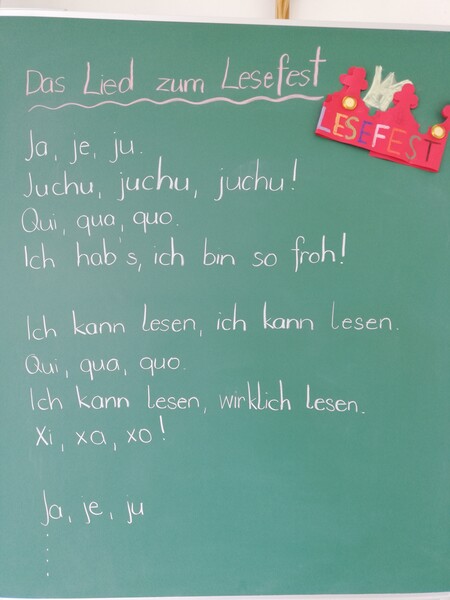 Das Lied zum Lesefest
LESEFEST
Ja, je, ju.
Juchu, juchu, juchu!
Qui, qua, quo.
Ich hab's, ich bin so froh!
Ich kann lesen, ich kann lesen.
Qui, qua, quo.
Ich kann lesen, wirklich lesen.
Xi, xa, xo!
Ja, je, ju